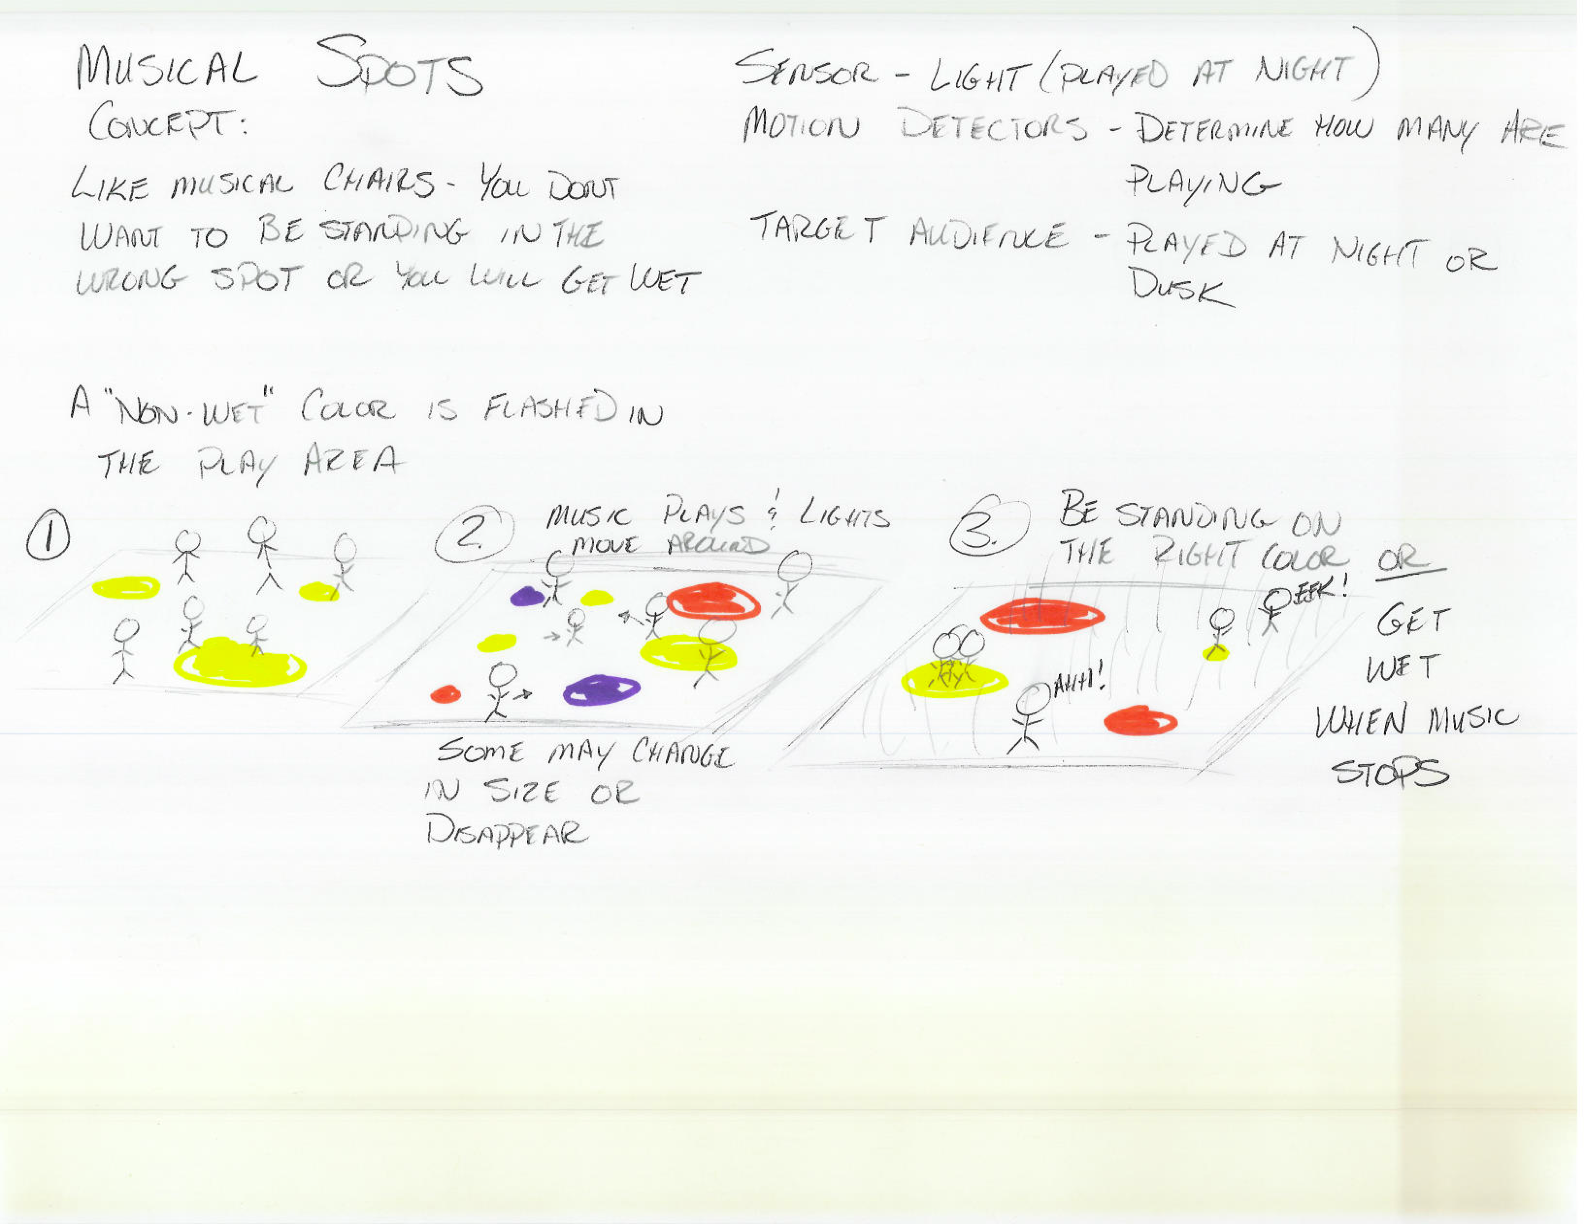 MUSICAL SPOTS
CONCEPT:
LIKE MUSICAL CHAIRS - YOU DONT
WANT TO BE STANDING IN THE
WRONG SPOT OR YOU WILL GET WET
SENSOR - LIGHT (PLAYED AT NIGHT)
MOTION DETECTORS - DETERMINE HOW MANY ARE
PLAYING
TARGET AUDIENCE - PLAYED AT NIGHT OR
DUSK
A "NON-WET" COLOR IS FLASHED IN
THE PLAY AREA
1
2. MUSIC PLAYS & LIGHTS
MOVE AROUND
SOME MAY CHANGE
IN SIZE OR
DISAPPEAR
3. BE STANDING ON
THE RIGHT COLOR OR
GET
WET
WHEN MUSIC
STOPS
EEK!
AHH!